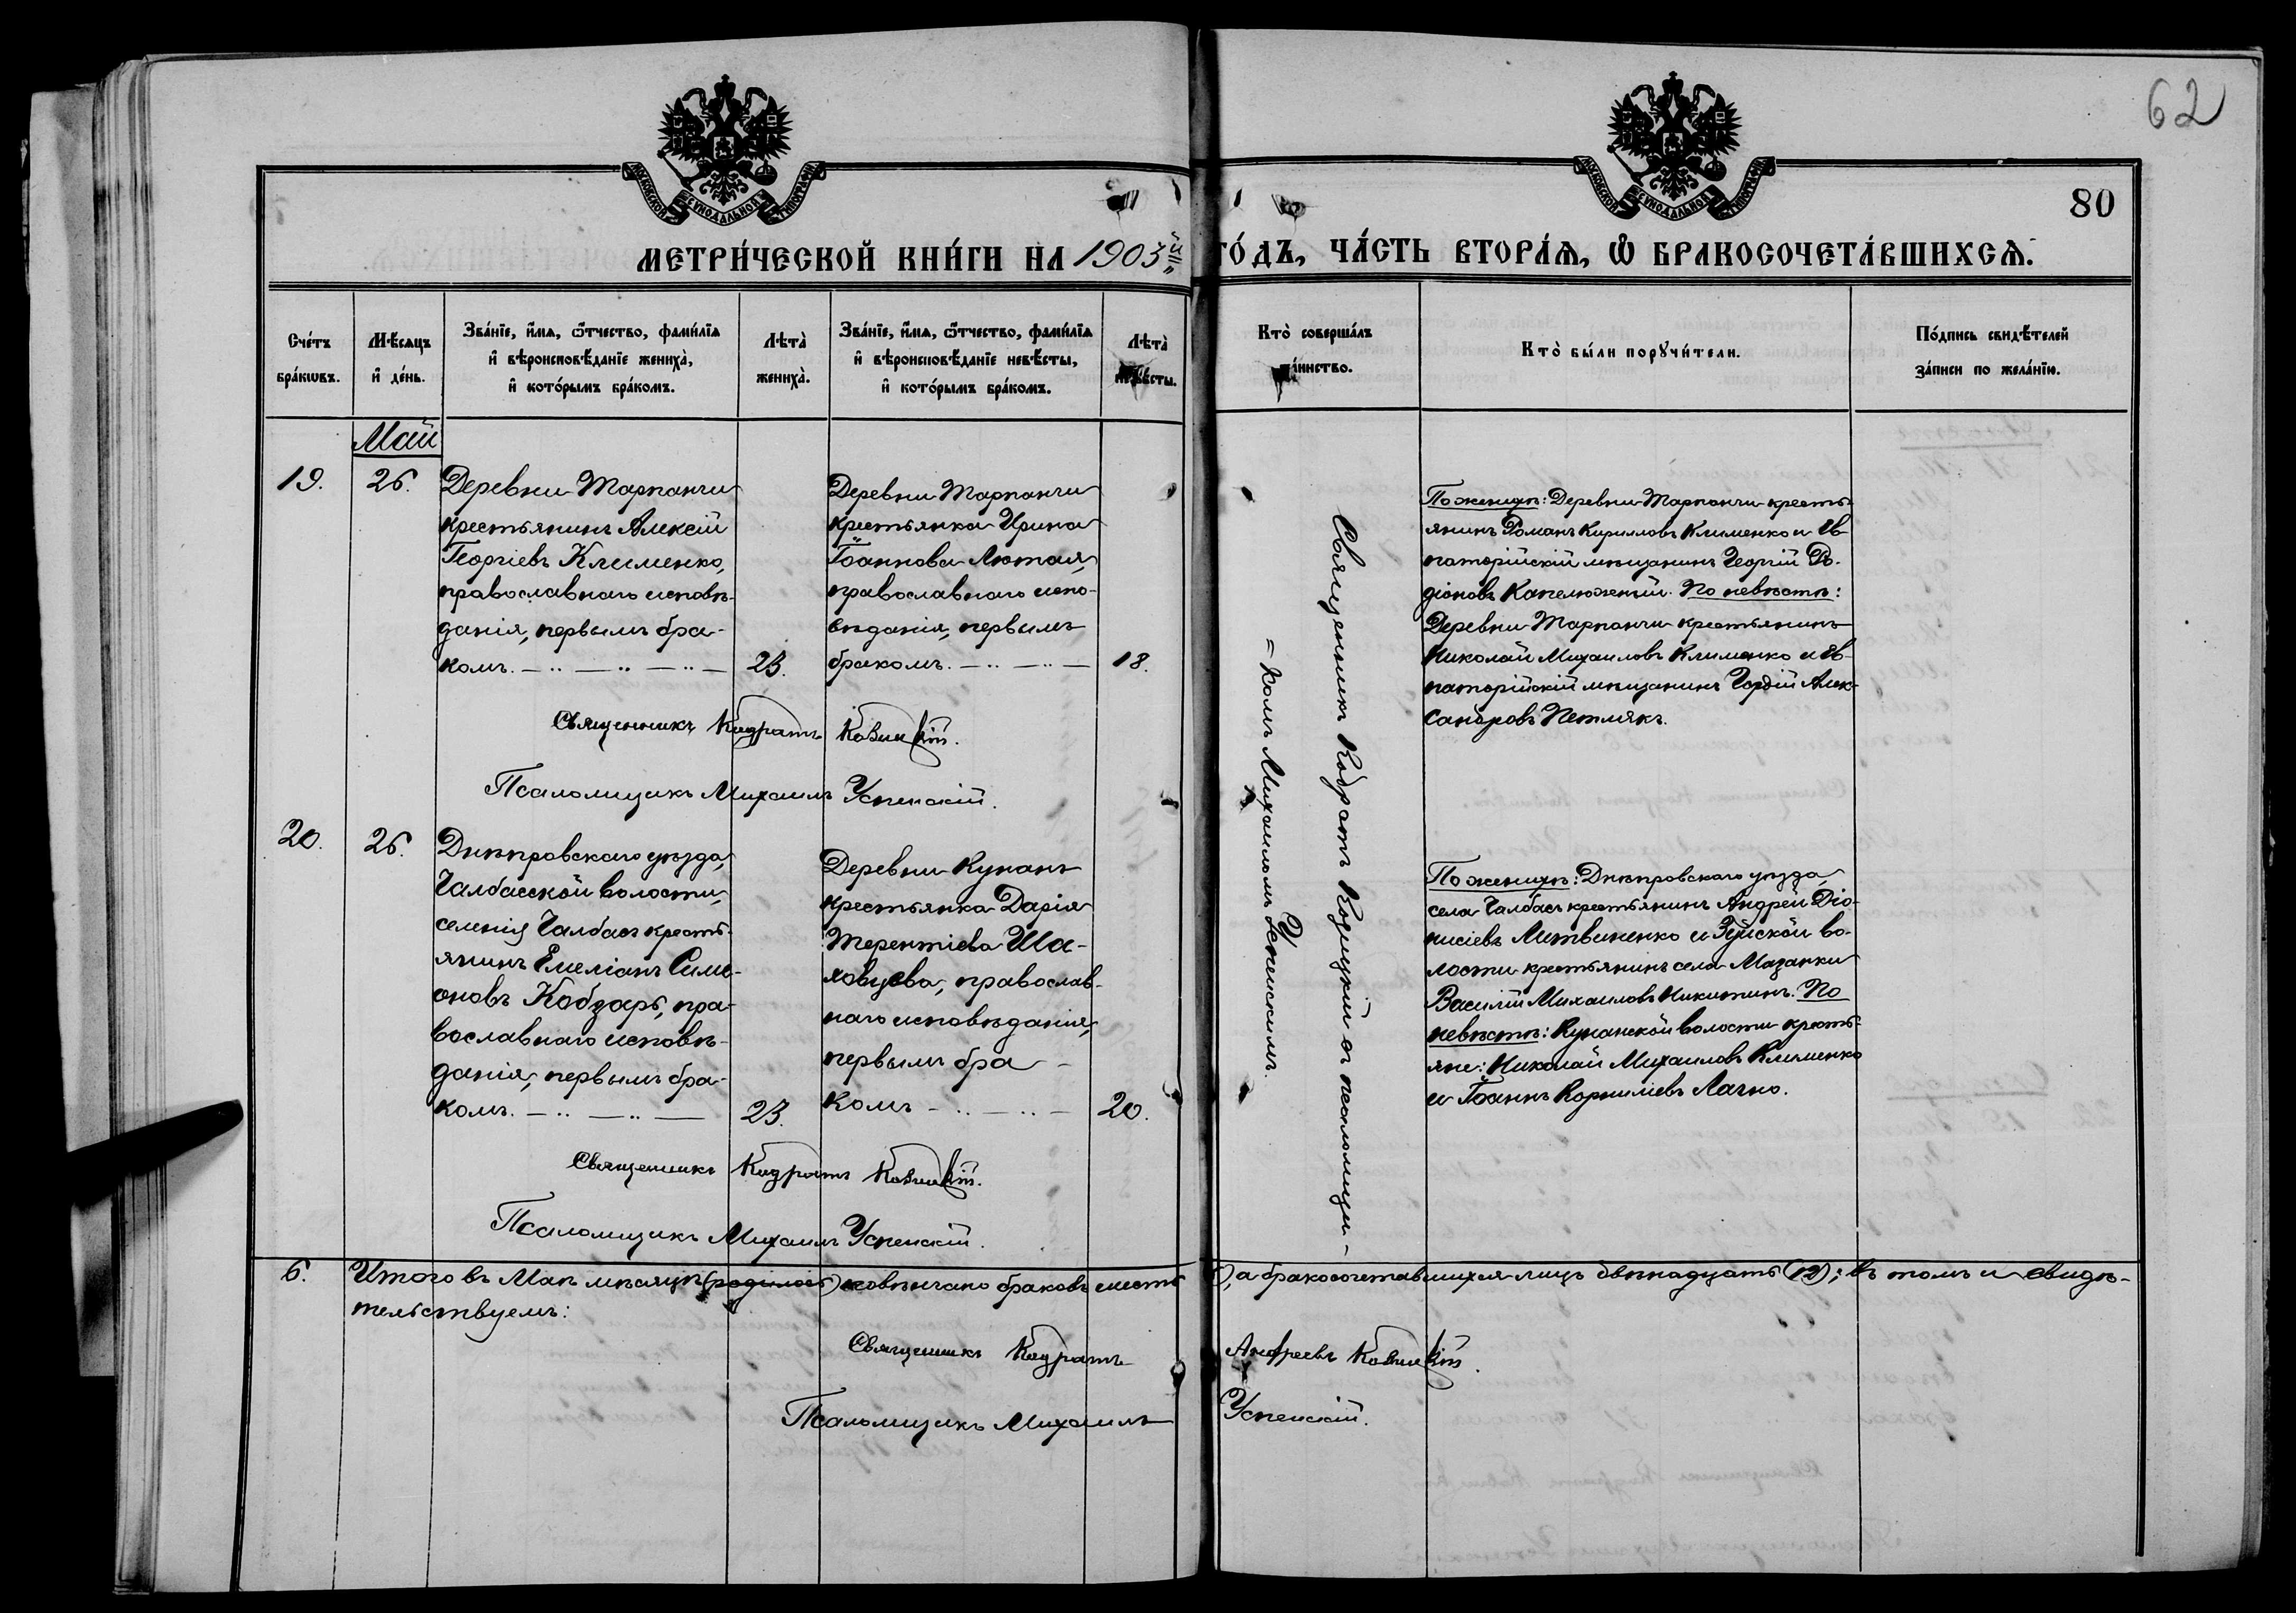 62
МОСКОВСКОЙ СѴНОДАЛЬНОЙ ТИПОГРАФІИ
МОСКОВСКОЙ СѴНОДАЛЬНОЙ ТИПОГРАФІИ
80
МЕТРИ́ЧЕСКОЙ КНИ́ГИ НА 1903й ГО́ДЪ, ЧА́СТЬ ВТОРА́Ѧ, Ѽ БРАКОСОЧЕТА́ВШИХСѦ.
Сче́тъ
бра́кѡвъ.
Мѣ́сяцъ
и҆ де́нь.
Зва́нїе, и҆́мя, ѻ҆́тчество, фами́лїя
и҆ вѣроисповѣ́данїе жениха̀,
и҆ кото́рымъ бра́комъ.
Лѣта̀
жениха̀.
Зва́нїе, и҆́мя, ѻ҆́тчество, фами́лїя
и҆ вѣроисповѣ́данїе невѣ́сты,
и҆ кото́рымъ бра́комъ.
Лѣта̀
невѣ́сты.
Кто̀ соверша́лъ
та́инство.
Кто̀ бы́ли порꙋчи́тели.
По́дпись свидѣ́телей
за́писи по жела́нїю.
Май
19.
26.
Деревни Тарпанчи
крестьянинъ Алексій
Георгіевъ Клименко,
православнаго исповѣ-
данія, первымъ бра-
комъ.
23.
Деревни Тарпанчи
крестьянка Ирина
Іоаннова Лютая,
православнаго испо-
вѣданія, первымъ
бракомъ.
18.
Священникъ Кодратъ
= комъ Михаиломъ Успенскимъ.
По женихѣ: Деревни Тарпанчи кресть-
янинъ Романъ Кирилловъ Клименко и Ев-
паторійскій мѣщанинъ Георгій Ро-
діоновъ Капелюжный. По невѣстѣ:
Деревни Тарпанчи крестьянинъ
Николай Михаиловъ Клименко и Ев-
паторійскій мѣщанинъ Гордій Алек-
сандровъ Петлякъ.
Священникъ Кодратъ
Псаломщикъ Михаилъ Успенскій.
20.
26.
Днѣпровскаго уѣзда,
Чалбасской волости,
селенія Чалбасъ кресть-
янинъ Емеліанъ Симе-
оновъ Кобзарь, пра-
вославнаго исповѣ-
данія, первымъ бра-
комъ.
23.
Деревни Кунанъ
крестьянка Дарія
Терентіева Ша-
ховцева, православ-
наго исповѣданія,
первымъ бра-
комъ
20.
По женихѣ: Днѣпровскаго уѣзда,
села Чалбасъ крестьянинъ Андрей Діо-
нисіевъ Литвиненко и Зуйской во-
лости крестьянинъ села Мазанки
Василій Михаиловъ Никитинъ. По
невѣстѣ: Кунанской волости кресть-
яне: Николай Михаиловъ Клименко
и Іоаннъ Корниліевъ Лачно.
Священникъ Кодратъ
Псаломщикъ Михаилъ Успенскій.
6.
Итого въ Маѣ мѣсяцѣ (родилось) повѣнчано браковъ шесть, а бракосочетавшихся лицъ двѣнадцать (12); въ томъ и свидѣ-
тельствуемъ:
Священникъ Кодратъ Андреевъ
Псаломщикъ Михаилъ Успенскій.